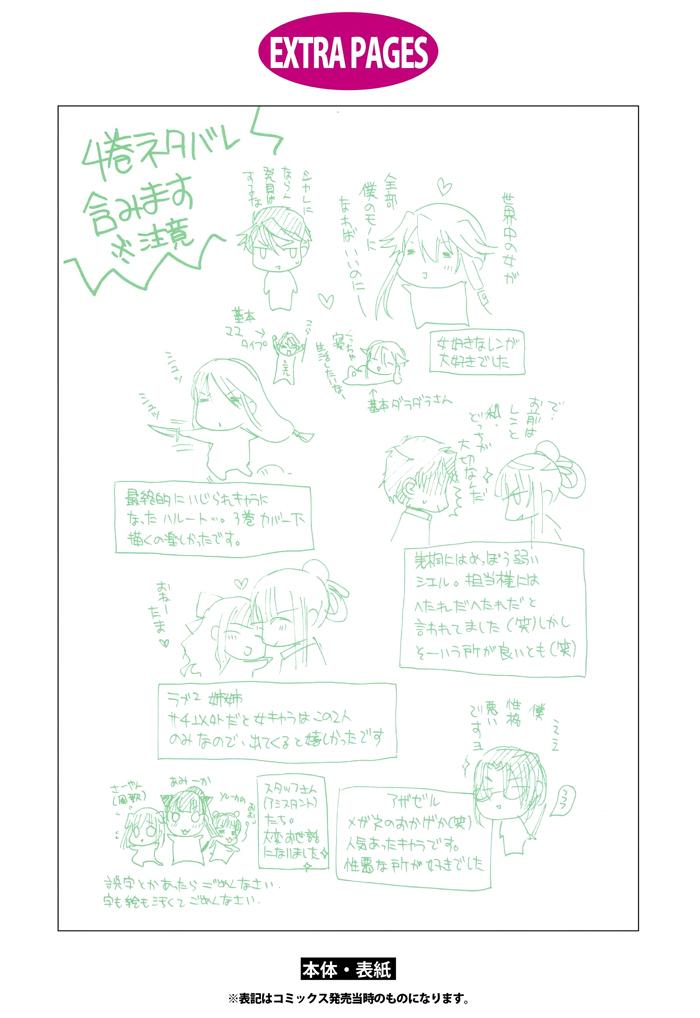 EXTRA PAGES
4巻ネタバレ
含みます
※注意
世界中の女が
全部
僕のモノに
なればいいのにー
シャレに
ならん
発言は
するな
女好きなレンが
大好きでした
基本
ママ→
タイプ
生活したいなー
↑
基本ダラダラさん
最終的にいじられキャラに
なったハルート…。3巻カバー下
描くの楽しかったです。
で、
お前は
レンと
私
どっちが
大切なんだ
先桐にはめっぽう弱い
シエル。担当様には
へたれだへたれだと
言われてました(笑)しかし
そーいう所が良いとも(笑)
おねー
たま♡
ラブ2 姉姉
サイユメトだと女キャラはこの2人
のみなので、出てくると嬉しかったです
ええ
僕
性格
悪い
ですヨ
アザゼル
メガネのおかげか(笑)
人気あったキャラです。
性悪な所が好きでした
さーやん
あみーか
スタッフさん
(アシスタント)
たち。
大変お世話
になりました
誤字とかあったらごめんなさい.
字も絵も汚くてごめんなさい.
本体・表紙
※表記はコミックス発売当時のものになります。